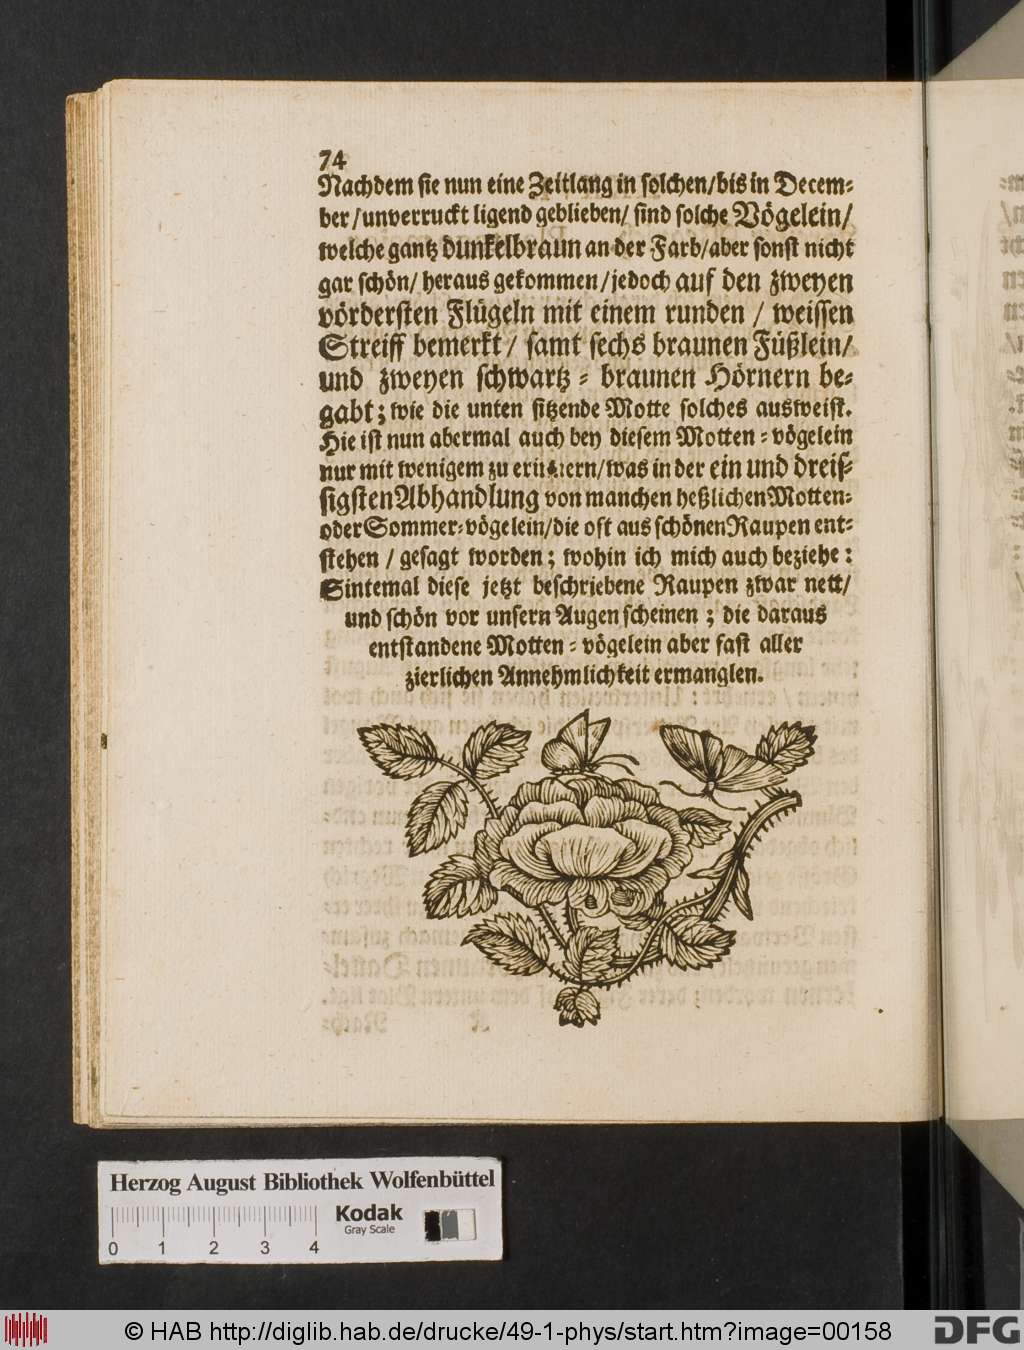 74
Nachdem sie nun eine Zeitlang in solchen/bis in Decem-
ber/unverruckt ligend geblieben/ sind solche Vögelein/
welche gantz dunkelbraun an der Farb/aber sonst nicht
gar schön/ heraus gekommen/jedoch auf den zweyen
vördersten Flügeln mit einem runden / weissen
Streiff bemerkt/ samt sechs braunen Füßlein/
und zweyen schwartz-braunen Hörnern be-
gabt; wie die unten sitzende Motte solches ausweist.
Hie ist nun abermal auch bey diesem Motten-vögelein
nur mit wenigem zu erinnern/was in der ein und dreis-
sigsten Abhandlung von manchen heßlichen Motten-
oder Sommer-vögelein/die oft aus schönen Raupen ent-
stehen / gesagt worden; wohin ich mich auch beziehe:
Sintemal diese jetzt beschriebene Raupen zwar nett/
und schön vor unsern Augen scheinen; die daraus
entstandene Motten-vögelein aber fast aller
zierlichen Annehmlichkeit ermanglen.
Herzog August Bibliothek Wolfenbüttel
Kodak
Gray Scale
0 1 2 3 4
© HAB http://diglib.hab.de/drucke/49-1-phys/start.htm?image=00158
DFG